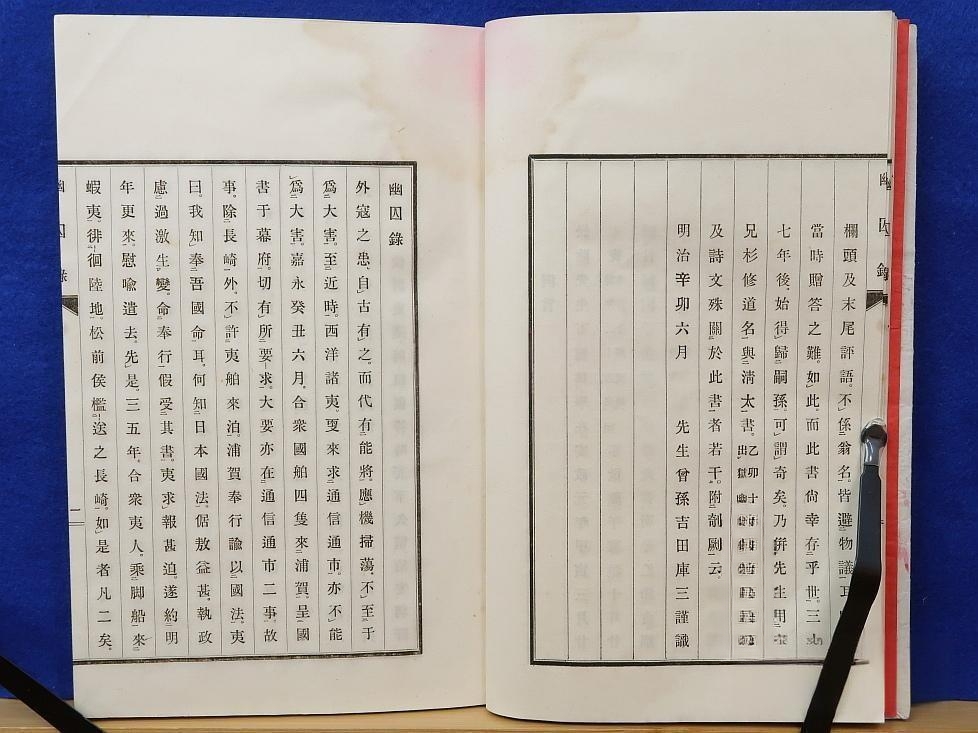 幽囚錄
欄頭及末尾評語。不係翁名。皆避物議耳
當時贈答之難。如此。而此書尙幸存乎世。三
七年後。始得歸嗣孫。可謂奇矣。乃倂先生用
兄杉修道名與淸太書。乙卯十
出獄幽
及詩文殊關於此書者若干。附剞劂云。
明治辛卯六月　先生曾孫吉田庫三謹識
幽囚錄
外寇之患。自古有之。而代有能將。應機掃蕩不至于
爲大害。至近時。西洋諸夷。更來求通信通市。亦不能
爲大害。嘉永癸丑六月。合衆國舶四隻來浦賀。呈國
書于幕府。切有所要求。大要亦在通信通市二事。故
事。除長崎外。不許夷舶來泊。浦賀奉行諭以國法。夷
曰。我知奉吾國命耳。何知日本國法。倨敖益甚。執政
慮過激生變。命奉行假受其書。夷求報甚迫。遂約明
年更來。慰喩遣去。先是。三五年。合衆夷人。乘脚船來
蝦夷。徘徊陸地。松前侯檻送之長崎。如是者凡二矣。
幽囚錄
二